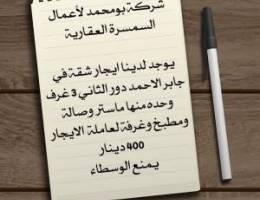 شركة بومحمد لأعمال
السمسرة العقارية
يوجد لدينا ايجار شقة في
جابر الاحمد دور الثاني 3 غرف
وحده منها ماستر وصالة
ومطبخ وغرفة لعاملة الايجار
400 دينار
يمنع الوسطاء